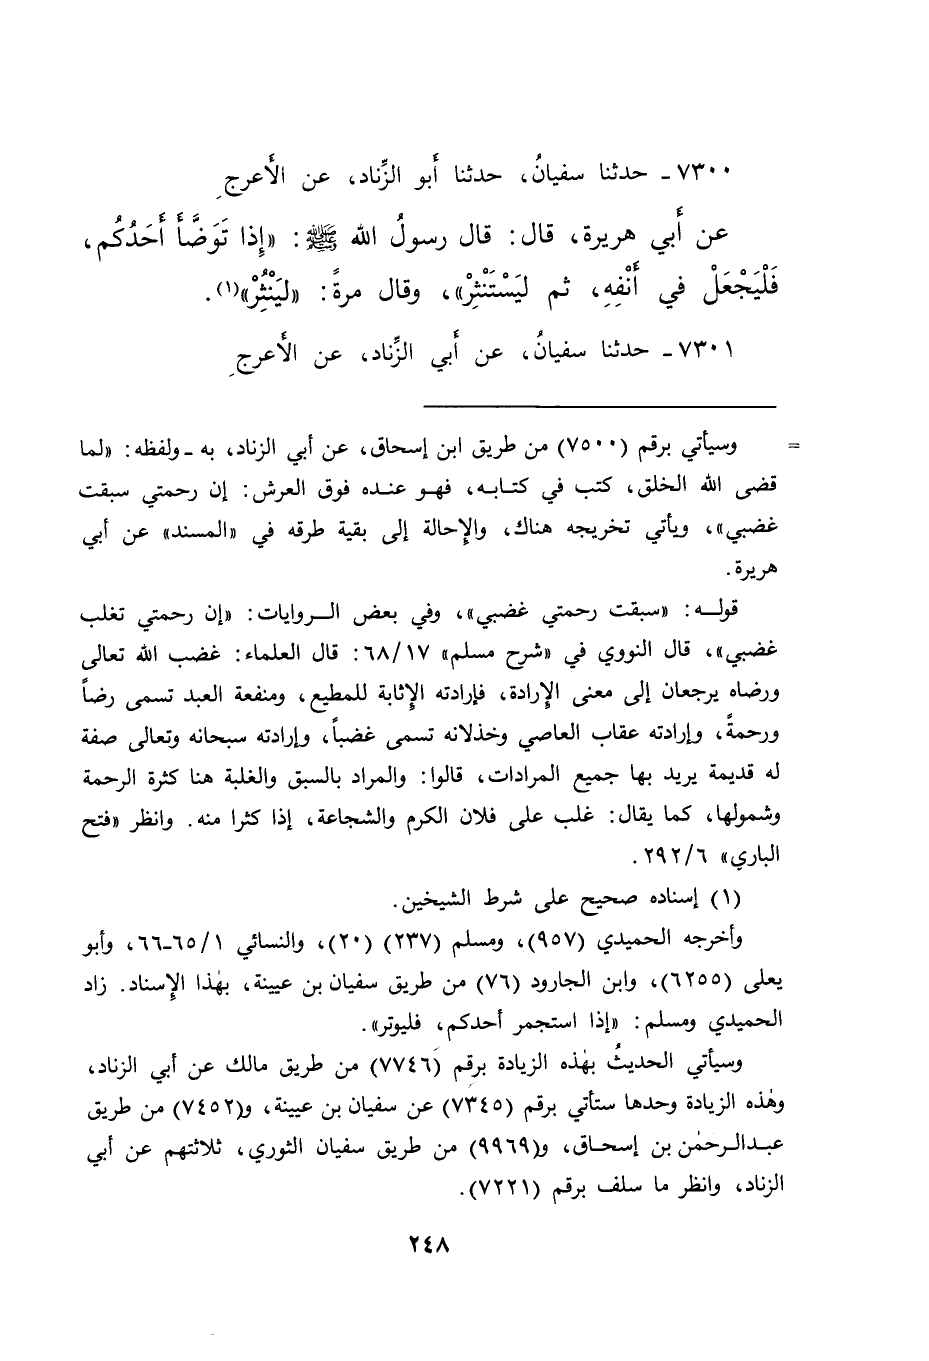 ٧٣٠٠ـ حدثنا سفيانُ، حدثنا أَبو الزِّناد، عن الأَعرجِ
عن أَبي هريرة، قال: قال رسولُ الله ﷺ: «إِذا تَوَضَّأَ أَحَدُكُم،
فَلْيَجْعَلْ في أَنْفِهِ، ثم ليَسْتَنْثِرْ»، وقال مرةً: «ليَنْثُِرْ»(١).
٧٣٠١ـ حدثنا سفيانُ، عن أَبي الزِّناد، عن الأَعرجِ
= وسيأتي برقم (٧٥٠٠) من طريق ابن إسحاق، عن أبي الزناد، به ـ ولفظه: «لما
قضى الله الخلق، كتب في كتابه، فهو عنده فوق العرش: إن رحمتي سبقت
غضبي»، ويأتي تخريجه هناك، والإحالة إلى بقية طرقه في «المسند» عن أبي
هريرة.
قوله: «سبقت رحمتي غضبي»، وفي بعض الروايات: «إن رحمتي تغلب
غضبي»، قال النووي في «شرح مسلم» ٦٨/١٧: قال العلماء: غضب الله تعالى
ورضاه يرجعان إلى معنى الإرادة، فإرادته الإثابة للمطيع، ومنفعة العبد تسمى رضاً
ورحمةً، وإرادته عقاب العاصي وخذلانه تسمى غضباً، وإرادته سبحانه وتعالى صفة
له قديمة يريد بها جميع المرادات، قالوا: والمراد بالسبق والغلبة هنا كثرة الرحمة
وشمولها، كما يقال: غلب على فلان الكرم والشجاعة، إذا كثرا منه. وانظر «فتح
الباري» ٢٩٢/٦.
(١) إسناده صحيح على شرط الشيخين.
وأخرجه الحميدي (٩٥٧)، ومسلم (٢٣٧) (٢٠)، والنسائي ٦٥/١ـ٦٦، وأبو
يعلى (٦٢٥٥)، وابن الجارود (٧٦) من طريق سفيان بن عيينة، بهٰذا الإسناد. زاد
الحميدي ومسلم: «إذا استجمر أحدكم، فليوتر».
وسيأتي الحديثُ بهٰذه الزيادة برقم (٧٧٤٦) من طريق مالك عن أبي الزناد،
وهٰذه الزيادة وحدها ستأتي برقم (٧٣٤٥) عن سفيان بن عيينة، و(٧٤٥٢) من طريق
عبدالرحمٰن بن إسحاق، و(٩٩٦٩) من طريق سفيان الثوري، ثلاثتهم عن أبي
الزناد، وانظر ما سلف برقم (٧٢٢١).
٢٤٨